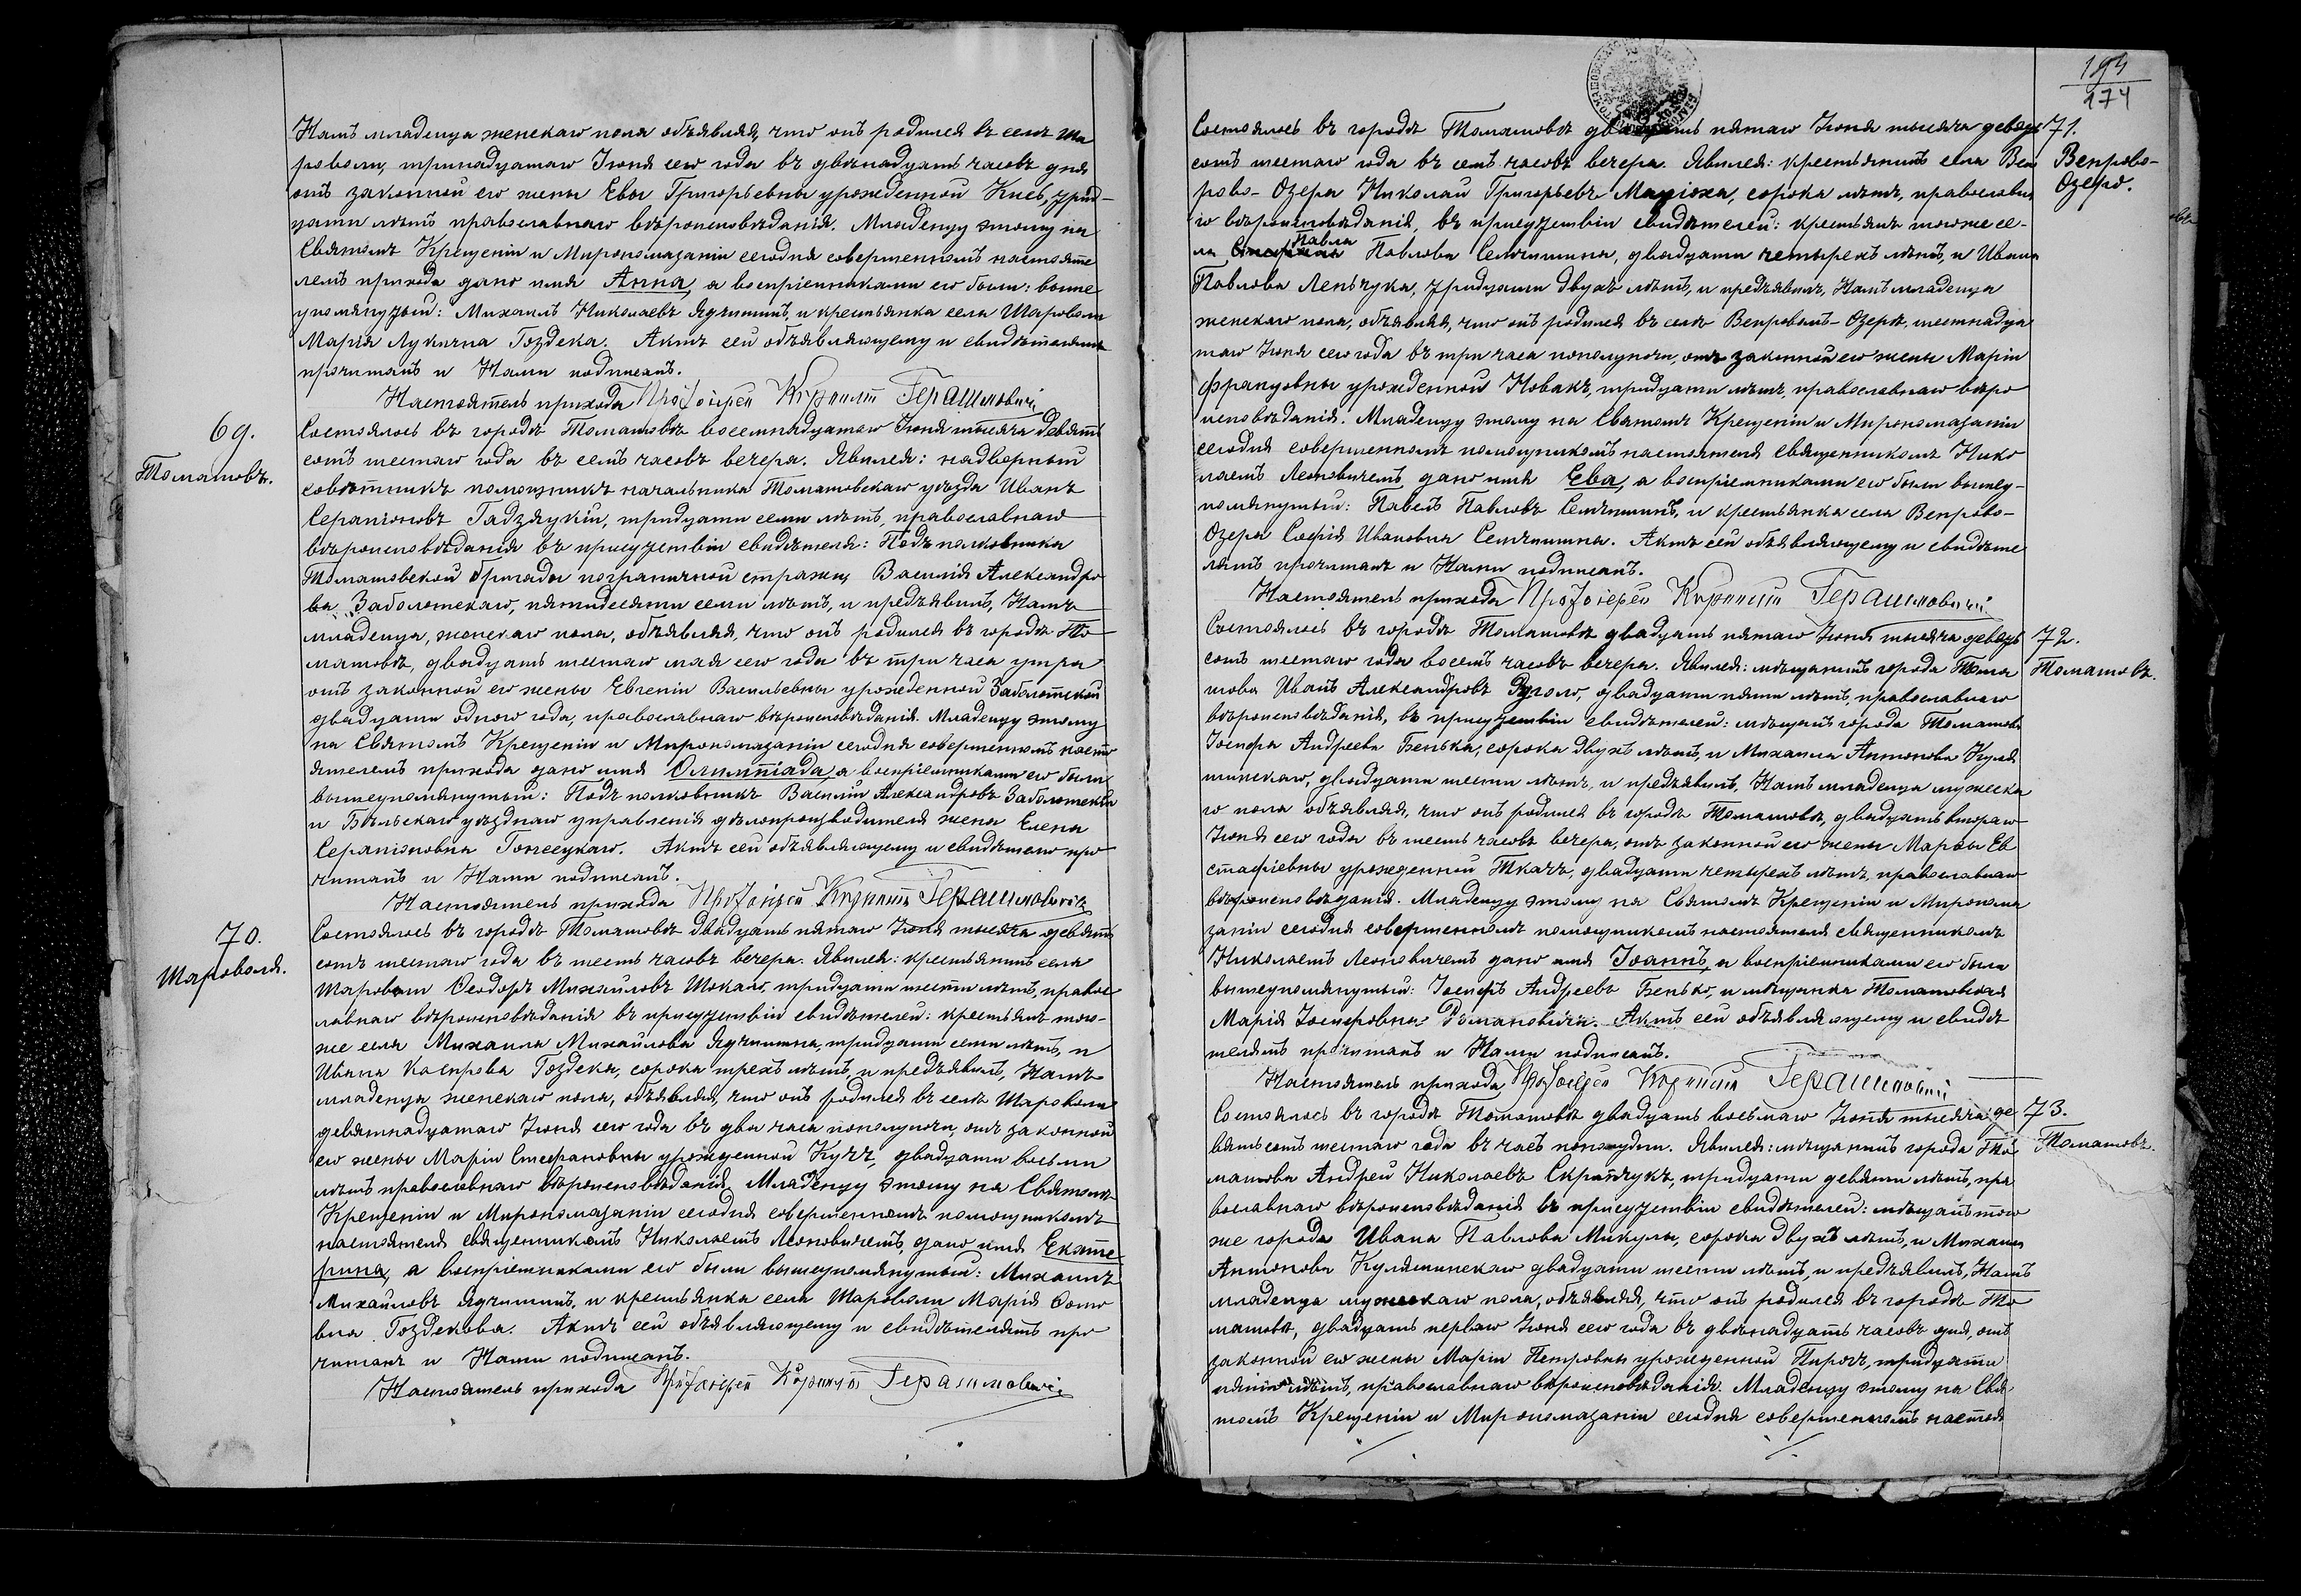 Намъ младенца женскаго пола объявляя, что онъ родился въ селѣ Ша
роволи, тринадцатаго Іюня сего года въ двѣнадцать часовъ дня
отъ законной его жены Евы Григорьевны урожденной Кисъ, трид-
цати лѣтъ православнаго вѣроисповѣданія. Младенцу этому на
Святомъ Крещеніи и Миропомазаніи сегодня совершенномъ настояте
лемъ прихода дано имя Анна, а воспріемниками его были: выше
упомянутый: Михаилъ Николаевъ Ядчишинъ, и крестьянка села Шароволи
Марія Лукична Гоздека. Актъ сей объявляющему и свидѣтелямъ
прочитанъ и Нами подписанъ.
Настоятель прихода Протоіерей Корнилій Герашимовичъ
69.
Томашовъ.
Состоялось въ городѣ Томашовѣ восемнадцатаго Іюня тысяча девять
сотъ шестаго года въ семь часовъ вечера. Явился: надворный
совѣтникъ помощникъ начальника Томашовскаго уѣзда Иванъ
Серапіоновъ Гадзяцкій, тридцати семи лѣтъ, православнаго
вѣроисповѣданія въ присутствіи свидѣтеля: Подъ полковника
Томашовской бригады пограничной стражи Василія Александро
ва Заболотскаго, пятидесяти семи лѣтъ, и предъявилъ, Намъ
младенца, женскаго пола, объявляя, что онъ родился въ городѣ То
машовѣ, двадцать шестаго мая сего года въ три часа утра
отъ законной его жены Евгеніи Васильевны урожденной Заболотской
двадцати одного года, православнаго вѣроисповѣданія. Младенцу этому
на Святомъ Крещеніи и Миропомазаніи сегодня совершенномъ насто
ятелемъ прихода дано имя Олимпіада, а воспріемниками его были
вышеупомянутый: Подъ полковникъ Василій Александровъ Заболотскій
и Бѣльскаго уѣзднаго управленія дѣлопроизводителя жена Елена
Серапіоновна. Актъ сей объявляющему и свидѣтелю про
читанъ и Нами подписанъ.
Настоятель прихода Протоіерей Корнилій Герашимовичъ
70.
Шароволя.
Состоялось въ городѣ Томашовѣ двадцать пятаго Іюня тысяча девять
сотъ шестаго года въ шесть часовъ вечера. Явился: крестьянинъ села
Шароволи Ѳеодоръ Михайловъ Шокало, тридцати шести лѣтъ, правос
лавнаго вѣроисповѣданія въ присутствіи свидѣтелей: крестьянъ того-
же села Михаила Михайлова Ядчишина, тридцати семи лѣтъ, и
Ивана Каспрова Гоздека, сорока трехъ лѣтъ, и предъявилъ, Намъ
младенца женскаго пола, объявляя, что онъ родился въ селѣ Шароволи
девятнадцатаго Іюня сего года въ два часа пополуночи, отъ законной
его жены Маріи Стефановны урожденной Кучъ, двадцати восьми
лѣтъ православнаго вѣроисповѣданія. Младенцу этому на Святомъ
Крещеніи и Миропомазаніи сегодня совершенномъ помощникомъ
настоятеля священникомъ Николаемъ Леоновичемъ, дано имя Екате
рина, а воспріемниками его были вышеупомянутый: Михаилъ
Михайловъ Ядчишинъ, и крестьянка села Шароволи Марія Ѳомо
вна Гоздекова. Актъ сей объявляющему и свидѣтелямъ про
читанъ и Нами подписанъ.
Настоятель прихода Протоіерей Корнилій Герашимовичъ
194
174
71.
Венрово-
Озеро.
Состоялось въ городѣ Томашовѣ двадцать пятаго Іюня тысяча девять
сотъ шестаго года въ семь часовъ вечера. Явился: крестьянинъ села Вен
рово-Озера Николай Григорьевъ Маціоха, сорока лѣтъ, православна
го вѣроисповѣданія, въ присутствіи свидѣтелей: крестьянъ тогоже се-
ла Павла Павлова Семчишина, двадцати четырехъ лѣтъ, и Ивана
Павлова Леньчука, тридцати двухъ лѣтъ, и предъявилъ, Намъ младенца
женскаго пола, объявляя, что онъ родился въ селѣ Венровомъ-Озерѣ, шестнадца
таго Іюня сего года въ три часа пополуночи, отъ законной его жены Маріи
Францовны урожденной Новакъ, тридцати лѣтъ, православнаго вѣро
исповѣданія. Младенцу этому на Святомъ Крещеніи и Миропомазаніи
сегодня совершенномъ помощникомъ настоятеля священникомъ Нико
лаемъ Леоновичемъ дано имя Ева, а воспріемниками его были вышеу-
помянутый: Павелъ Павловъ Семчишинъ, и крестьянка села Венрово-
Озера Софія Ивановна Семчишина. Актъ сей объявляющему и свидѣте
лямъ прочитанъ и Нами подписанъ.
Настоятель прихода Протоіерей Корнилій Герашимовичъ
72.
Томашовъ.
Состоялось въ городѣ Томашовѣ двадцать пятаго Іюня тысяча девять
сотъ шестаго года восемь часовъ вечера. Явился: мѣщанинъ города Тома
шова Иванъ Александровъ, двадцати пяти лѣтъ, православнаго
вѣроисповѣданія, въ присутствіи свидѣтелей: мѣщанъ города Томашова
Іосифа Андреева Бенька, сорока двухъ лѣтъ, и Михаила Антонова Куля
шинскаго, двадцати шести лѣтъ, и предъявилъ, Намъ младенца мужска
го пола объявляя, что онъ родился въ городѣ Томашовѣ, двадцать втораго
Іюня сего года въ шесть часовъ вечера, отъ законной его жены Марѳы Ев
стафіевны урожденной Ткачъ, двадцати четырехъ лѣтъ, православнаго
вѣроисповѣданія. Младенцу этому на Святомъ Крещеніи и Миропома
заніи сегодня совершенномъ помощникомъ настоятеля священникомъ
Николаемъ Леоновичемъ дано имя Іоаннъ, а воспріемниками его были
вышеупомянутый: Іосифъ Андреевъ Бенько, и мѣщанка Томашовская
Марія Іосифовна Романовичъ. Актъ сей объявляющему и свидѣ
телямъ прочитанъ и Нами подписанъ.
Настоятель прихода Протоіерей Корнилій Герашимовичъ
73.
Томашовъ.
Состоялось въ городѣ Томашовѣ двадцать восьмаго Іюня тысяча де
вятьсотъ шестаго года въ часъ пополудни. Явился: мѣщанинъ города То
машова Андрей Николаевъ Скрапчукъ, тридцати девяти лѣтъ, пра
вославнаго вѣроисповѣданія въ присутствіи свидѣтелей: мѣщанъ того
же города Ивана Павлова Микулы, сорока двухъ лѣтъ, и Михаила
Антонова Куляшинскаго двадцати шести лѣтъ, и предъявилъ, Намъ
младенца мужескаго пола, объявляя, что онъ родился въ городѣ То
машовѣ, двадцать перваго Іюня сего года въ двѣнадцать часовъ дня, отъ
законной его жены Маріи Петровны урожденной Пирогъ, тридцати
пяти лѣтъ, православнаго вѣроисповѣданія. Младенцу этому на Свя
томъ Крещеніи и Миропомазаніи сегодня совершенномъ настоя